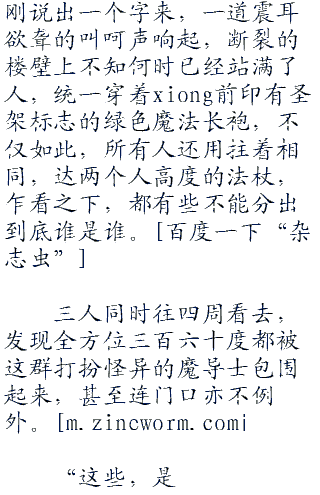 刚说出一个字来，一道震耳
欲聋的叫呵声响起，断裂的
楼壁上不知何时已经站满了
人，统一穿着xiong前印有圣
架标志的绿色魔法长袍，不
仅如此，所有人还用拄着相
同，达两个人高度的法杖，
乍看之下，都有些不能分出
到底谁是谁。[百度一下“杂
志虫”]
三人同时往四周看去，
发现全方位三百六十度都被
这群打扮怪异的魔导士包围
起来，甚至连门口亦不例
外。[m.zincworm.com]
“这些，是